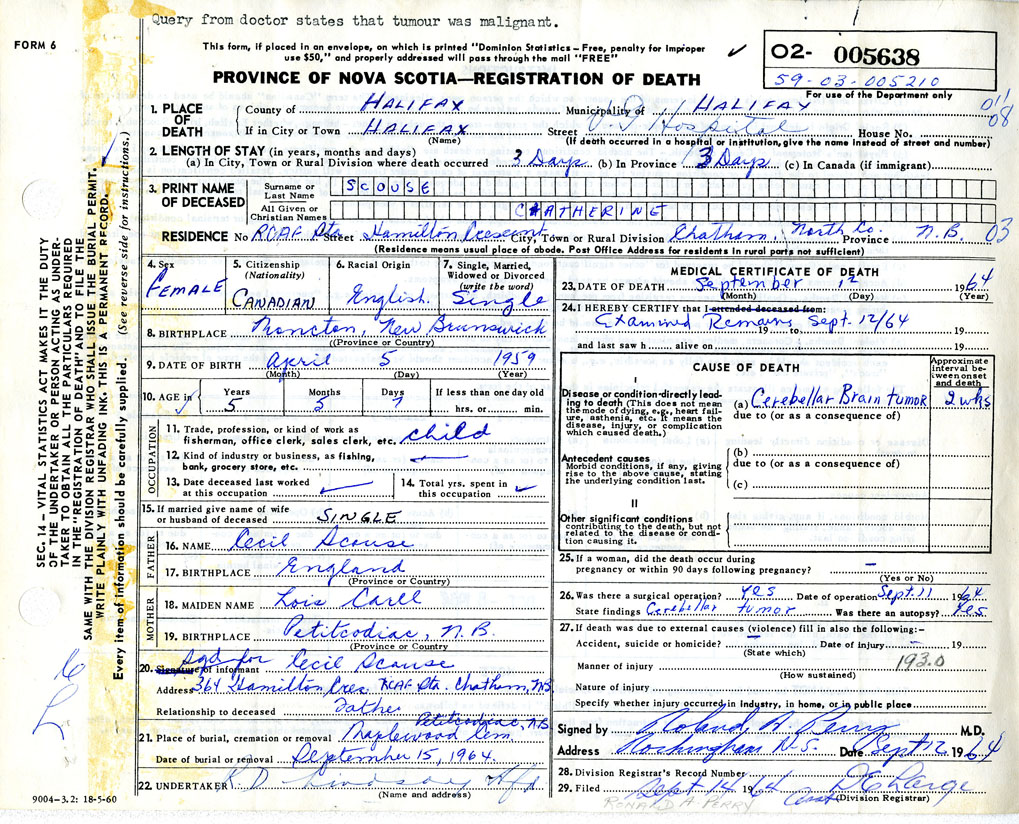 Query from doctor states that tumour was malignant.
FORM 6
This form, if placed in an envelope, on which is printed "Dominion Statistics – Free, penalty for improper
use $50," and properly addressed will pass through the mail "FREE"
✓
O2- 005638
59-03-005210
For use of the Department only
PROVINCE OF NOVA SCOTIA—REGISTRATION OF DEATH
011
08
1. PLACE OF DEATH
County of HALIFAX Municipality of HALIFAX
If in City or Town HALIFAX Street V.G. Hospital House No.
(Name) (If death occurred in a hospital or institution, give the name instead of street and number)
2. LENGTH OF STAY (in years, months and days)
(a) In City, Town or Rural Division where death occurred 3 Days (b) In Province 3 Days (c) In Canada (if immigrant)
3. PRINT NAME OF DECEASED
Surname or Last Name SCOUSE
All Given or Christian Names CATHERINE
RESIDENCE No RCAF Sta. Street Hamilton Crescent City, Town or Rural Division Chatham, North Co. Province N.B. 03
(Residence means usual place of abode. Post Office Address for residents in rural parts not sufficient)
4. Sex FEMALE
5. Citizenship (Nationality) CANADIAN
6. Racial Origin English.
7. Single, Married, Widowed or Divorced (write the word) Single
8. BIRTHPLACE Moncton, New Brunswick
(Province or Country)
9. DATE OF BIRTH April 5 1959
(Month) (Day) (Year)
10. AGE in ✓ Years 5 Months 5 Days 7 If less than one day old
hrs. or min.
OCCUPATION
11. Trade, profession, or kind of work as
fisherman, office clerk, sales clerk, etc. child
12. Kind of industry or business, as fishing,
bank, grocery store, etc.
13. Date deceased last worked
at this occupation ✓
14. Total yrs. spent in
this occupation ✓
15. If married give name of wife
or husband of deceased SINGLE
FATHER
16. NAME Cecil Scouse
17. BIRTHPLACE England
(Province or Country)
MOTHER
18. MAIDEN NAME Lois
19. BIRTHPLACE Petitcodiac, N.B.
(Province or Country
20. Signature of informant sgd for Cecil Scouse
Address 364 Hamilton Cres. RCAF Sta. Chatham, N.B.
Relationship to deceased Father
21. Place of burial, cremation or removal Maplewood Cem Petitcodiac, N.B.
Date of burial or removal September 15, 1964.
22. UNDERTAKER R D Lindsay
(Name and address)
9004–3.2: 18-5-60
MEDICAL CERTIFICATE OF DEATH
23. DATE OF DEATH September 12 1964
(Month) (Day) (Year)
24. I HEREBY CERTIFY that I attended deceased from:
Examined Remains Sept. 12/64
19 to 19
and last saw h alive on 19
CAUSE OF DEATH
Approximate interval between onset and death
I
Disease or condition directly leading to death (This does not mean the mode of dying, e.g., heart failure, asthenia, etc. It means the disease, injury, or complication which caused death.)
(a) Cerebellar Brain tumor 2 wks
due to (or as a consequence of)
Antecedent causes
Morbid conditions, if any, giving rise to the above cause, stating the underlying condition last.
(b)
due to (or as a consequence of)
(c)
II
Other significant conditions
contributing to the death, but not related to the disease or condition causing it.
25. If a woman, did the death occur during
pregnancy or within 90 days following pregnancy? –
(Yes or No)
26. Was there a surgical operation? yes Date of operation Sept. 11 1964
State findings Cerebellar tumor Was there an autopsy? Yes
27. If death was due to external causes (violence) fill in also the following:–
Accident, suicide or homicide? – Date of injury – 19
(State which)
193.0
Manner of injury
(How sustained)
Nature of injury
Specify whether injury occurred in industry, in home, or in public place
Signed by Roland H. Perry M.D.
Address Rockingham N.S. Date Sept 12 1964
28. Division Registrar's Record Number
29. Filed Sept 14 1964 D E Large
Asst (Division Registrar)
RONALD H PERRY
SEC. 14 – VITAL STATISTICS ACT MAKES IT THE DUTY
OF THE UNDERTAKER OR PERSON ACTING AS UNDER-
TAKER TO OBTAIN ALL THE PARTICULARS REQUIRED
IN THE "REGISTRATION OF DEATH" AND TO FILE THE
SAME WITH THE DIVISION REGISTRAR WHO SHALL ISSUE THE BURIAL PERMIT.
WRITE PLAINLY WITH UNFADING INK. THIS IS A PERMANENT RECORD.
Every item of information should be carefully supplied. (See reverse side for instructions.)